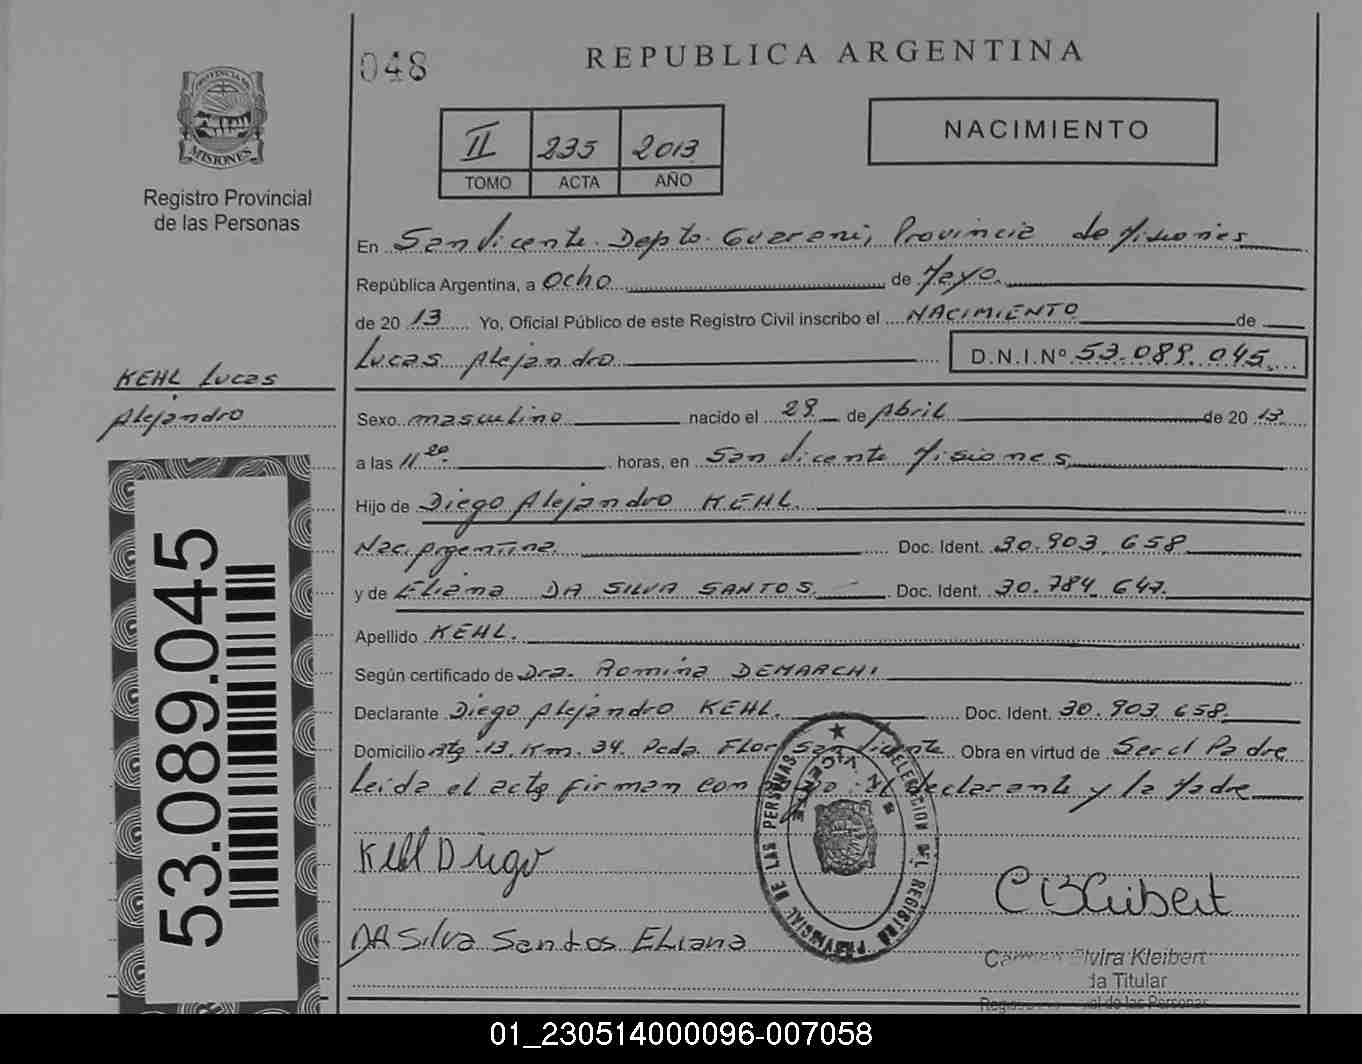 048
REPUBLICA ARGENTINA
PROVINCIA DE
MISIONES
Registro Provincial
de las Personas
II 235 2013
TOMO ACTA AÑO
NACIMIENTO
En San Vicente Depto. Guarani, Provincia de Misiones
República Argentina, a Ocho de Mayo
de 20 13 Yo, Oficial Público de este Registro Civil inscribo el NACIMIENTO de
Lucas Alejandro D.N.I.Nº 53.089.045
KEHL Lucas
Alejandro
Sexo masculino nacido el 29 de Abril de 20 13
a las 11 horas, en San Vicente Misiones
Hijo de Diego Alejandro KEHL.
Nac. Argentina Doc. Ident. 30.903.658
y de Eliana DA SILVA SANTOS Doc. Ident. 30.784.647.
Apellido KEHL.
Según certificado de Dra. Romina DEMARCHI
Declarante Diego Alejandro KEHL. Doc. Ident. 30.903.658.
Domicilio Km. 34. Pcda. Flor San Vicente Obra en virtud de Ser el Padre
Leida el acta firman con el declarante y la Madre
Kehl Diego
DA Silva Santos Eliana
53.089.045
DELEGACION DEL REGISTRO PROVINCIAL DE LAS PERSONAS
SAN VICENTE
CBKleibert
Elvira Kleibert
Titular
de las Personas
01_230514000096-007058